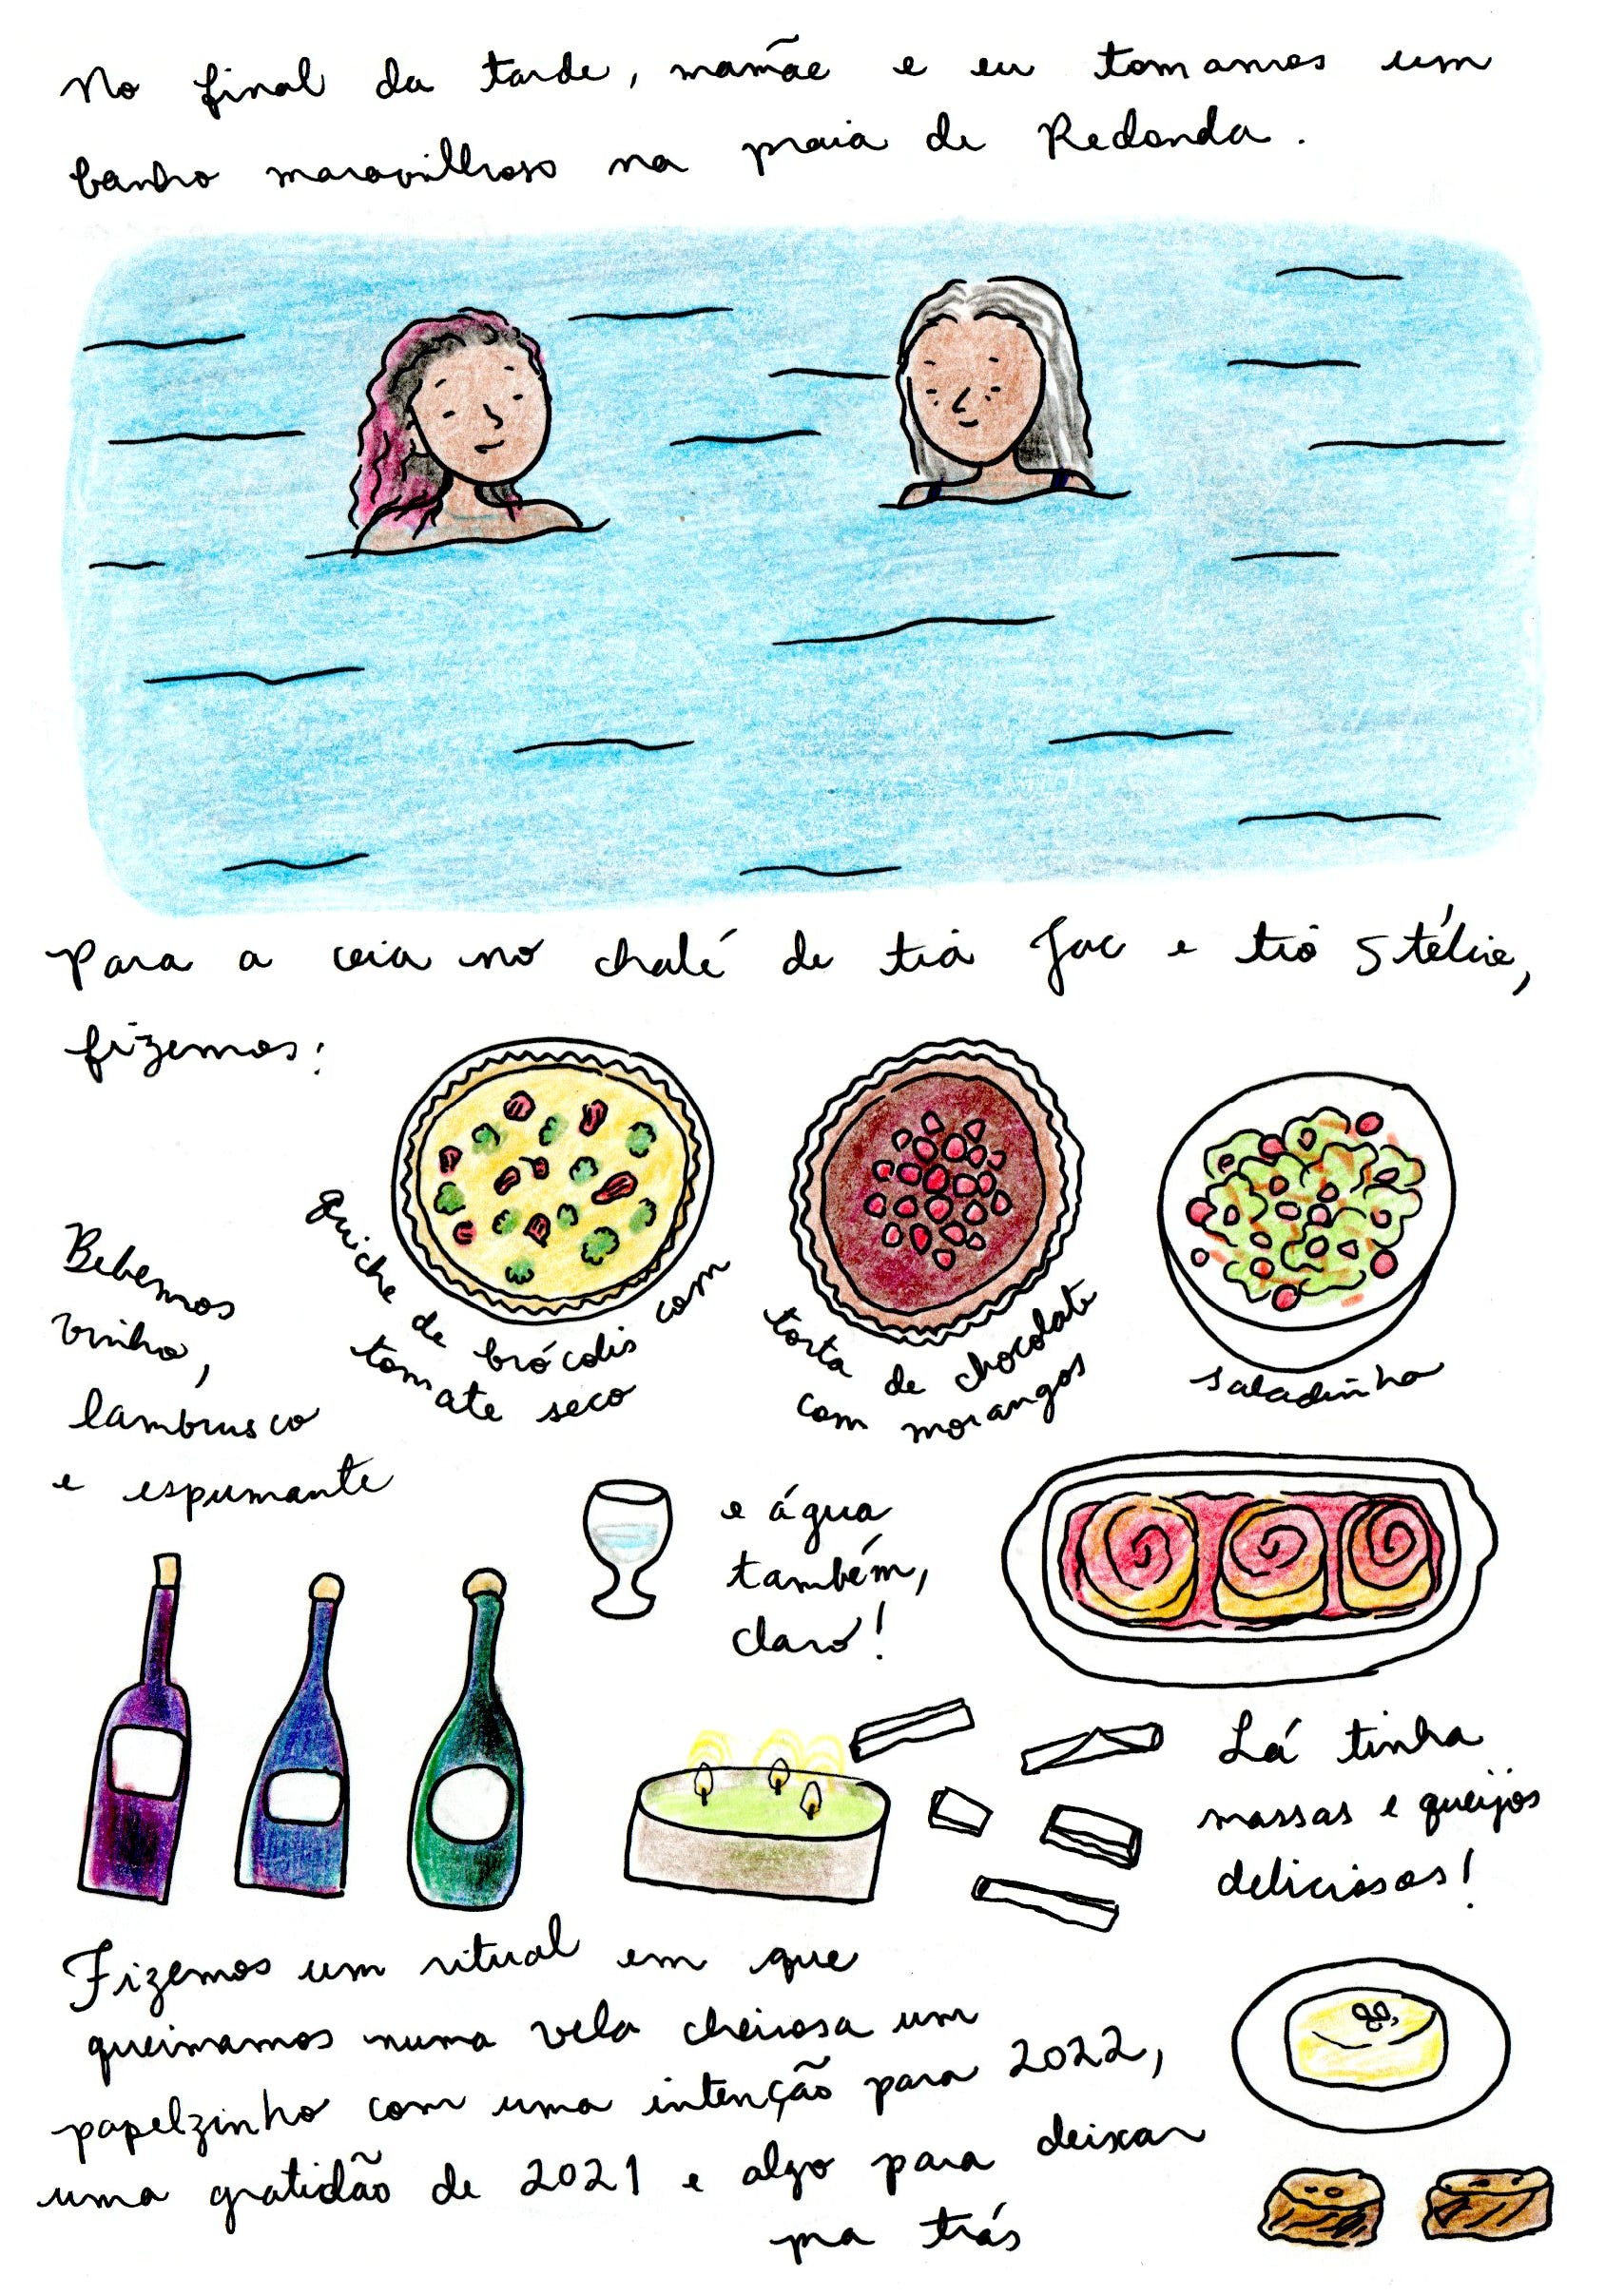 No final da tarde, mamãe e eu tomamos um
banho maravilhoso na praia de Redonda.
Para a ceia no chalé de tia Jac e tio Stélio,
fizemos:
quiche de brócolis com
tomate seco
torta de chocolate
com morangos
saladinha
Bebemos
vinho,
lambrusco
e espumante
e água
também,
claro!
Lá tinha
massas e queijos
deliciosos!
Fizemos um ritual em que
queimamos numa vela cheirosa um
papelzinho com uma intenção para 2022,
uma gratidão de 2021 e algo para deixar
pra trás